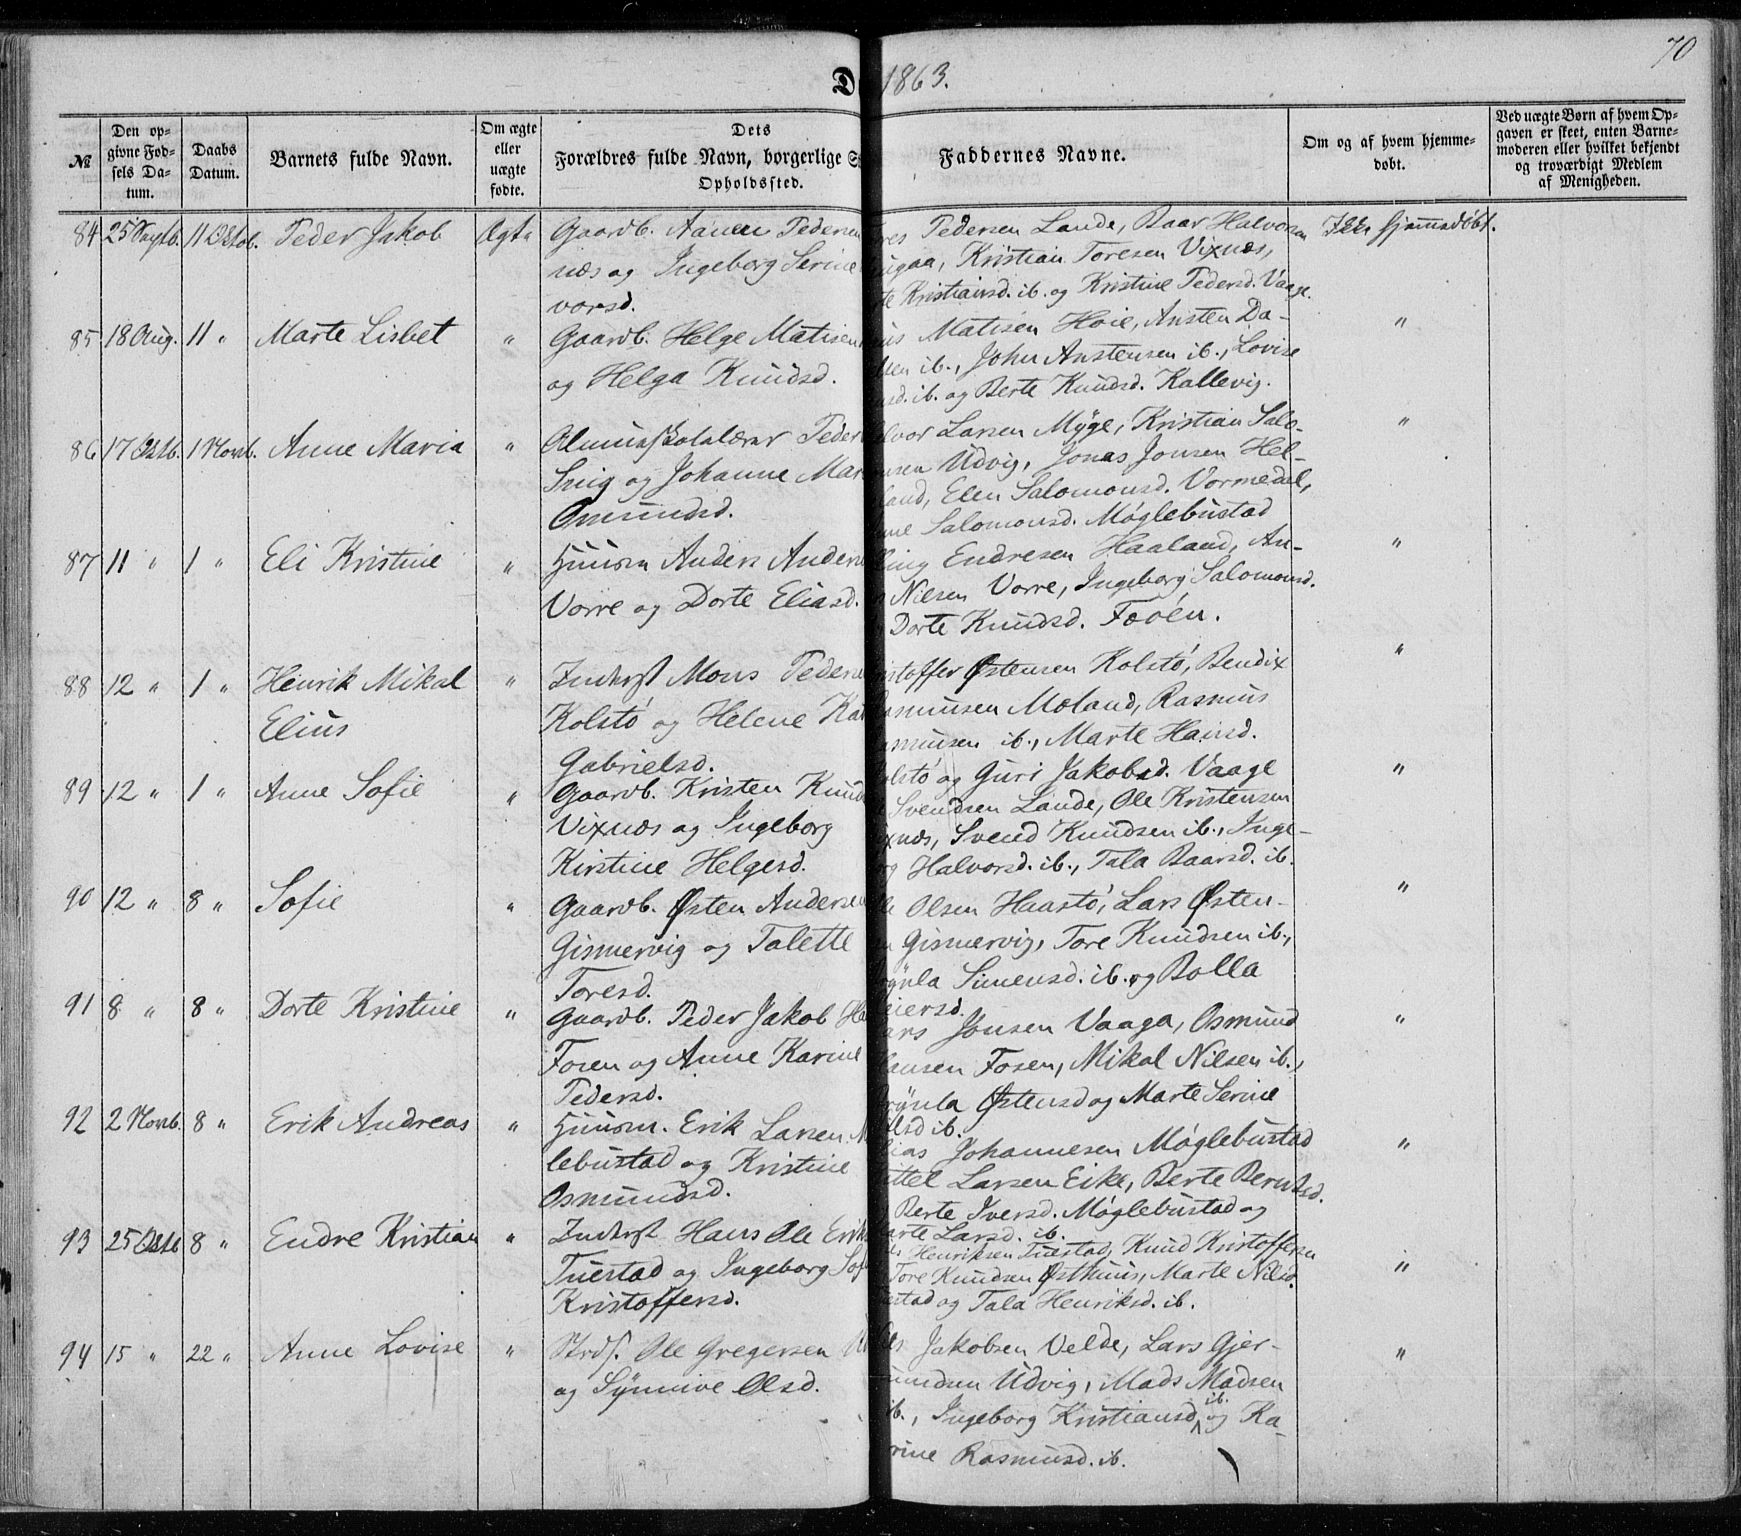 70
D 1863.
№
Den op-
givne Fød-
sels Da-
tum.
Daabs
Datum.
Barnets fulde Navn.
Om ægte
eller
uægte
fødte.
Dets
Forældres fulde Navn, borgerlige S
Opholdssted.
Faddernes Navne.
Om og af hvem hjemme-
døbt.
Ved uægte Børn af hvem Op-
gaven er skeet, enten Barne-
moderen eller hvilket bekjendt
og troværdigt Medlem
af Menigheden.
84 25 Septb. 11 Oktob. Peder Jakob Ægte Gaardb. Pedersen
næs og Ingeborg Serine
vorsd.
Pedersen Lande, Baar Halvorsen
ugaa, Kristian Toresen Vixnæs,
te Kristiansd. ib. og Kristine Pedersd. Vaage.
Ikke hjemmedøbt.
85 18 Aug. 11 " Marte Lisbet " Gaardb. Helge Matisen
og Helga Knudsd.
us Matisen Høie, Ansten Da-
sen ib., John Anstensen ib., Lovise
sd. ib. og Berte Knudsd. Kallevig.
"
86 17 Oktb. 1 Novb. Anne Maria " Almueskolelærer Peder
Snig og Johanne Mar
Omundsd.
lvor Larsen Myge, Kristian Salo-
onsen Udvig, Jonas Jonsen Hel-
land, Elen Salomonsd. Vormedal,
nne Salomonsd. Møglebustad
"
87 11 " 1 " Eli Kristine " Huusm Anders Anderse
Vorre og Dorte Eliasd.
ling Endresen Haaland, An-
s Nilsen Vorre, Ingeborg Salomonsd.
Dorte Knudsd. Fæøen.
"
88 12 " 1 " Henrik Mikal
Elius
" Inderst Mons Pederse
Kolstø og Helene Kat
Gabrielsd.
ristoffer Østensen Kolstø, Bendix
asmusen Moland, Rasmus
asmusen ib., Marte Hansd.
olstø og Guri Jakobsd. Vaage
"
89 12 " 1 " Anne Sofie " Gaardb. Kristen Knud
Vixnæs og Ingeborg
Kirstine Helgesd.
Svendsen Lande, Ole Kristensen
ixnæs, Svend Knudsen ib., Inge-
rg Halvorsd. ib., Tala Baarsd. ib.
"
90 12 " 8 " Sofie " Gaardb. Østen Andersen
Gismervig og Talette
Toresd.
le Olsen Haastø, Lars Østen-
en Gismervig, Tore Knudsen ib.,
rynla Simensd. ib. og Bolla
eiersd.
"
91 8 " 8 " Dorte Kristine " Gaardb. Peder Jakob Ha
Fosen og Anne Karine
Pedersd.
ars Jonsen Vaaga, Osmund
ansen Fosen, Mikal Nilsen ib.,
rynla Østensd og Marte Serine
lsd ib.
"
92 2 Novb. 8 " Erik Andreas " Huusm. Erik Larsen M
lebustad og Kristine
Osmundsd.
ias Johannesen Møglebustad
ittel Larsen Eike, Berte Berntsd.
Berte Iversd. Møglebustad og
arte Larsd. ib.
"
93 25 Oktb 8 " Endre Kristian " Inderst Hans Ole Erik
Tuestad og Ingeborg Sof
Kristoffersd.
Henriksen Tuestad, Knud Kristoffersen
Tore Knudsen Østhuus, Marte Nilsd.
uestad og Tala Henriksd. ib.
"
94 15 " 22 " Anne Lovise " Strds. Ole Gregersen
og Synnive Olsd.
Jakobsen Velde, Lars Gjer-
mundsen Udvig, Mads Madsen
ib., Ingeborg Kristiansd. ib. og Ka-
rine Rasmusd. ib.
"